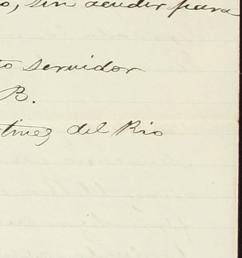 o, sin acudir para
to servidor
B.
tinez del Rio